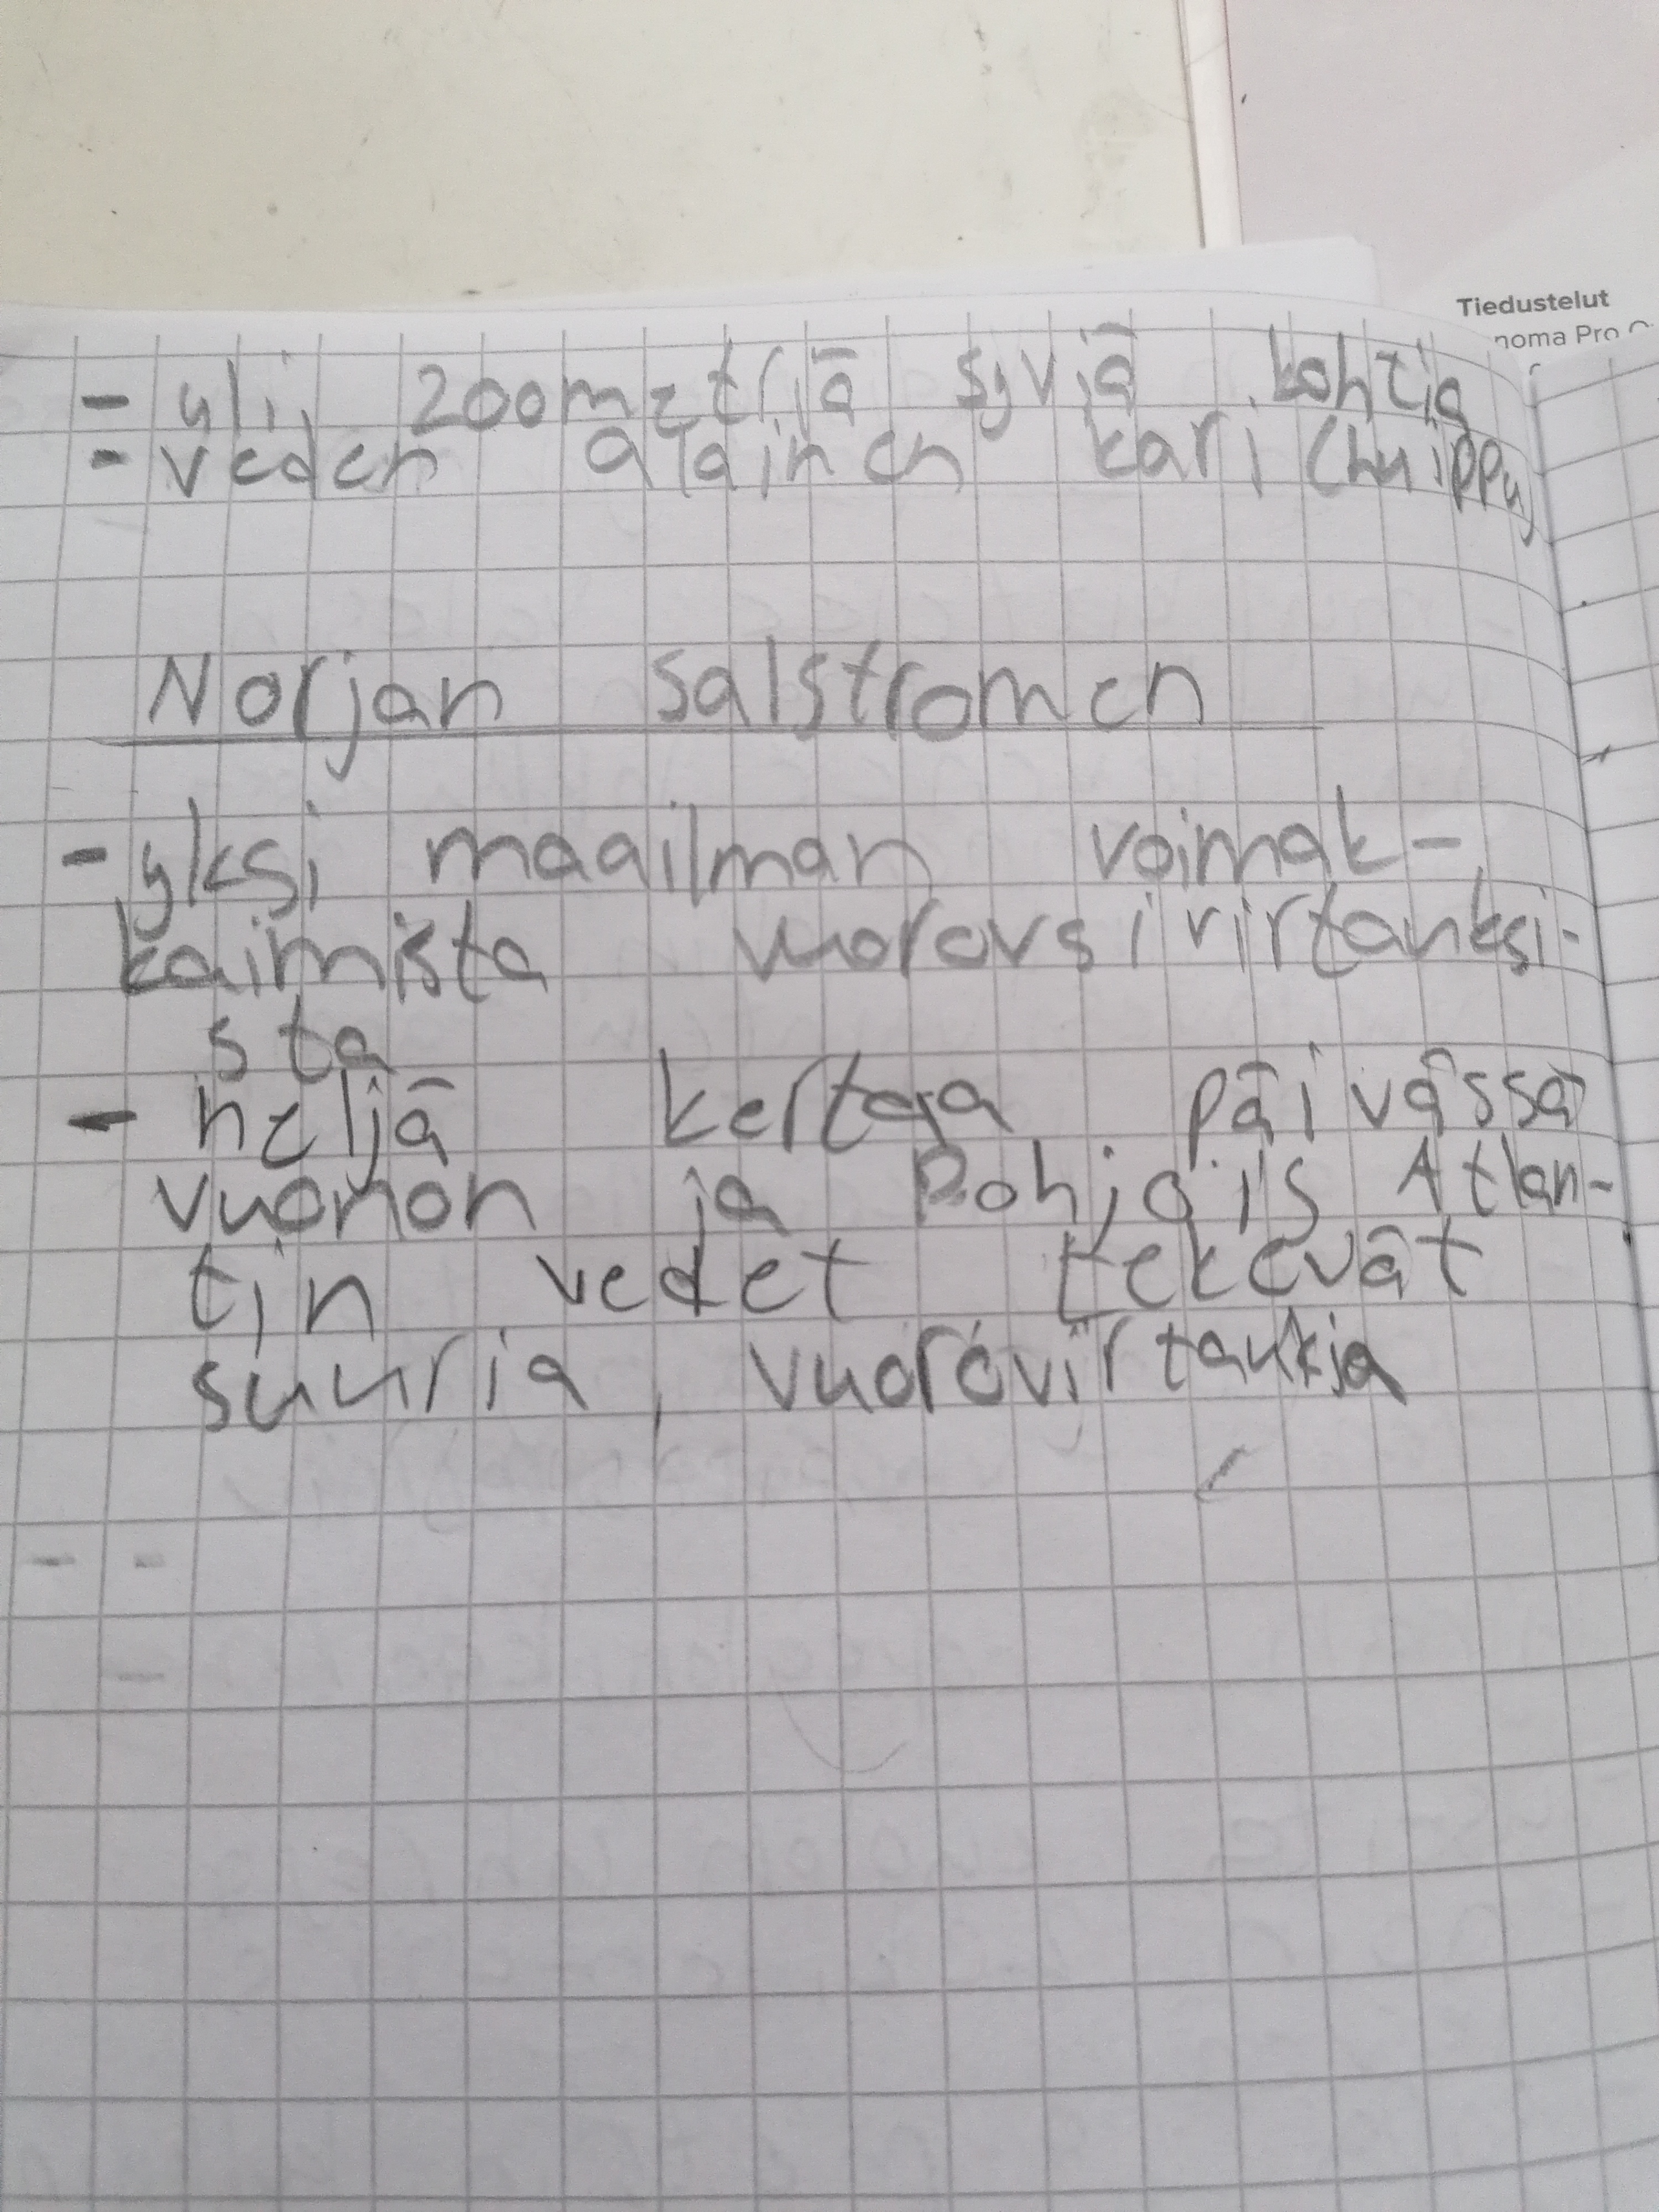 Tiedustelut
noma Pro O
- yli 200metrjä syviä kohtia
- veden alainen kari (huippu)
Norjan salstromen
- yksi maailman voimak-
kaimista vuorovsivirtauksi-
sta
- neljä kertaa päivässä
vuonon ja Pohjois Atlan-
tin vedet tekevät
suuria, vuorovirtaukia